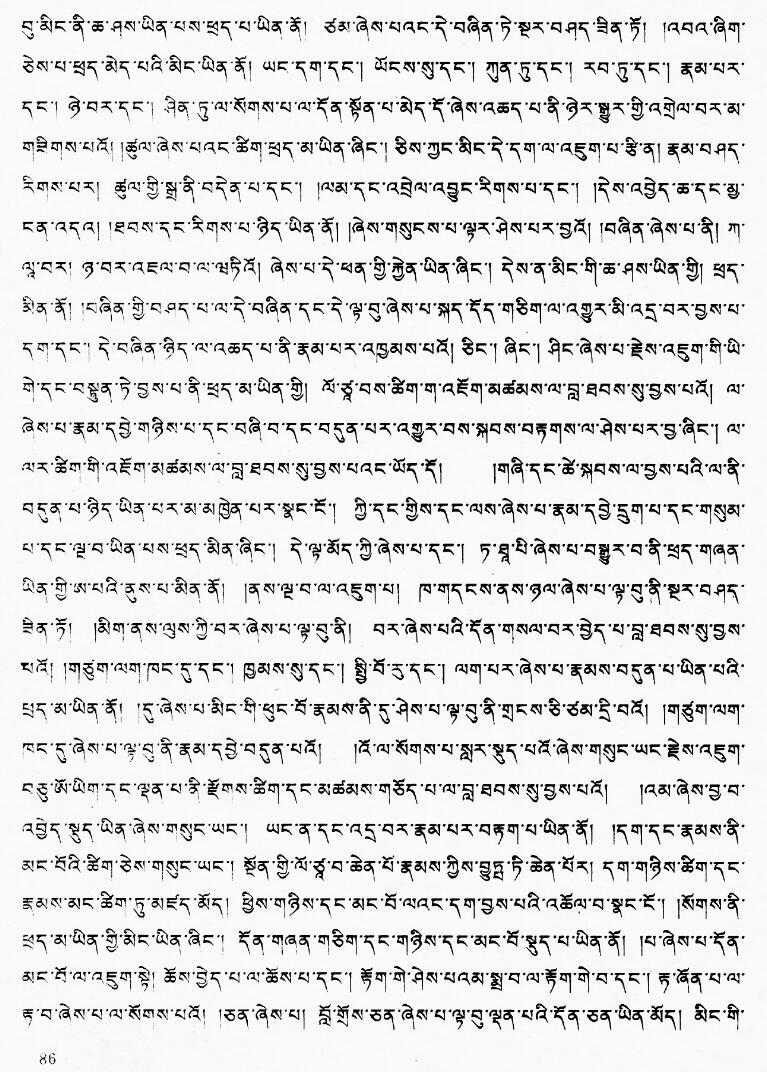 བུ་མིང་ནི་ཆ་ཤས་ཡིན་པས་ཕྲད་པ་ཡིན་ནོ། ཙམ་ཞེས་པའང་དེ་བཞིན་ཏེ་སྔར་བཤད་ཟིན་ཏོ། །འབའ་ཞིག་
ཅེས་པ་ཕྲད་མེད་པའི་མིང་ཡིན་ནོ། ཡང་དག་དང་། ཡོངས་སུ་དང་། ཀུན་ཏུ་དང་། རབ་ཏུ་དང་། རྣམ་པར་
དང་། ཉེ་བར་དང་། ཤིན་ཏུ་ལ་སོགས་པ་ལ་དོན་སྟོན་པ་མེད་དོ་ཞེས་འཆད་པ་ནི་ཉེར་སྒྱུར་གྱི་འགྲེལ་བར་མ་
གཟིགས་པའོ། །ཚུལ་ཞེས་པའང་ཚིག་ཕྲད་མ་ཡིན་ཞིང་། ཅིས་ཀྱང་མིང་དེ་དག་ལ་འཇུག་པ་རྩི་ན། རྣམ་བཤད་
རིགས་པར། ཚུལ་གྱི་སྒྲ་ནི་བདེན་པ་དང་། །ལམ་དང་འབྲེལ་འབྱུང་རིགས་པ་དང་། །དེས་འབྱེད་ཆ་དང་མྱ་
ངན་འདའ། །ཐབས་དང་རིགས་པ་ཉིད་ཡིན་ནོ། །ཞེས་གསུངས་པ་ལྟར་ཤེས་པར་བྱའོ། །བཞིན་ཞེས་པ་ནི། ཀ་
ལཱ་བར། ཉ་བར་འཇལ་བ་ལ་ཝཏིའོ། ཞེས་པ་དེ་ཕན་གྱི་རྐྱེན་ཡིན་ཞིང་། དེས་ན་མིང་གི་ཆ་ཤས་ཡིན་གྱི། ཕྲད་
མིན་ནོ། །བཞིན་གྱི་བཤད་པ་ལ་དེ་བཞིན་དང་དེ་ལྟ་བུ་ཞེས་པ་སྐད་དོད་གཅིག་ལ་འགྱུར་མི་འདྲ་བར་བྱས་པ་
དག་དང་། དེ་བཞིན་ཉིད་ལ་འཆད་པ་ནི་རྣམ་པར་འཁྱམས་པའོ། ཅིང་། ཞིང་། ཤིང་ཞེས་པ་རྗེས་འཇུག་གི་ཡི་
གེ་དང་བསྟུན་ཏེ་བྱས་པ་ནི་ཕྲད་མ་ཡིན་གྱི། ལོ་ཙཱ་བས་ཚིག་ག་འཇོག་མཚམས་ལ་བླ་ཐབས་སུ་བྱས་པའོ། ལ་
ཞེས་པ་རྣམ་དབྱེ་གཉིས་པ་དང་བཞི་བ་དང་བདུན་པར་འགྱུར་བས་སྐབས་བརྟགས་ལ་ཤེས་པར་བྱ་ཞིང་། ལ་
ལར་ཚིག་གི་འཇོག་མཚམས་ལ་བླ་ཐབས་སུ་བྱས་པའང་ཡོད་དོ། །གཞི་དང་ཚེ་སྐབས་ལ་བྱས་པའི་ལ་ནི་
བདུན་པ་ཉིད་ཡིན་པར་མ་མཁྱེན་པར་སྣང་ངོ་། ཀྱི་དང་གྱིས་དང་ལས་ཞེས་པ་རྣམ་དབྱེ་དྲུག་པ་དང་གསུམ་
པ་དང་ལྔ་བ་ཡིན་པས་ཕྲད་མིན་ཞིང་། དེ་ལྟ་མོད་ཀྱི་ཞེས་པ་དང་། ཏ་ཐཱ་པི་ཞེས་པ་བསྒྱུར་བ་ནི་ཕྲད་གཞན་
ཡིན་གྱི་ཨ་པའི་ནུས་པ་མིན་ནོ། །ནས་ལྔ་བ་ལ་འཇུག་པ། ཁ་གདངས་ནས་ཉལ་ཞེས་པ་ལྟ་བུ་ནི་སྔར་བཤད་
ཟིན་ཏོ། །མིག་ནས་ལུས་ཀྱི་བར་ཞེས་པ་ལྟ་བུ་ནི། བར་ཞེས་པའི་དོན་གསལ་བར་བྱེད་པ་བླ་ཐབས་སུ་བྱས་
པའོ། །གཙུག་ལག་ཁང་དུ་དང་། ཁྱམས་སུ་དང་། སྤྱི་བོ་རུ་དང་། ལག་པར་ཞེས་པ་རྣམས་བདུན་པ་ཡིན་པའི་
ཕྲད་མ་ཡིན་ནོ། །དུ་ཞེས་པ་མིང་གི་ཕུང་པོ་རྣམས་ནི་དུ་ཤེས་པ་ལྟ་བུ་ནི་གྲངས་ཅི་ཙམ་དྲི་བའོ། །གཙུག་ལག་
ཁང་དུ་ཞེས་པ་ལྟ་བུ་ནི་རྣམ་དབྱེ་བདུན་པའོ། །འོ་ལ་སོགས་པ་སླར་སྡུད་པའོ་ཞེས་གསུང་ཡང་རྗེས་འཇུག་
བཅུ་ཨོ་ཡིག་དང་ལྡན་པ་ནི་རྫོགས་ཚིག་དང་མཚམས་གཅོད་པ་ལ་བླ་ཐབས་སུ་བྱས་པའོ། །འམ་ཞེས་བྱ་བ་
འབྱེད་སྡུད་ཡིན་ཞེས་གསུང་ཡང་། ཡང་ན་དང་འདྲ་བར་རྣམ་པར་བརྟག་པ་ཡིན་ནོ། །དག་དང་རྣམས་ནི་
མང་པོའི་ཚིག་ཅེས་གསུང་ཡང་། སྔོན་གྱི་ལོ་ཙཱ་བ་ཆེན་པོ་རྣམས་ཀྱིས་བྱུཏྤ་ཏི་ཆེན་པོར། དག་གཉིས་ཚིག་དང་
རྣམས་མང་ཚིག་ཏུ་མཛད་མོད། ཕྱིས་གཉིས་དང་མང་པོ་ལའང་དག་བྱས་པའི་འཚོལ་བ་སྣང་ངོ་། །སོགས་ནི་
ཕྲད་མ་ཡིན་གྱི་མིང་ཡིན་ཞིང་། དོན་གཞན་གཅིག་དང་གཉིས་དང་མང་པོ་སྡུད་པ་ཡིན་ནོ། །པ་ཞེས་པ་དོན་
མང་པོ་ལ་འཇུག་སྟེ། ཆོས་བྱེད་པ་ལ་ཆོས་པ་དང་། རྟོག་གེ་ཤེས་པའམ་སྨྲ་བ་ལ་རྟོག་གེ་བ་དང་། རྟ་ཞོན་པ་ལ་
རྟ་བ་ཞེས་པ་ལ་སོགས་པའོ། །ཅན་ཞེས་པ། བློ་གྲོས་ཅན་ཞེས་པ་ལྟ་བུ་ལྡན་པའི་དོན་ཅན་ཡིན་མོད། མིང་གི་
86